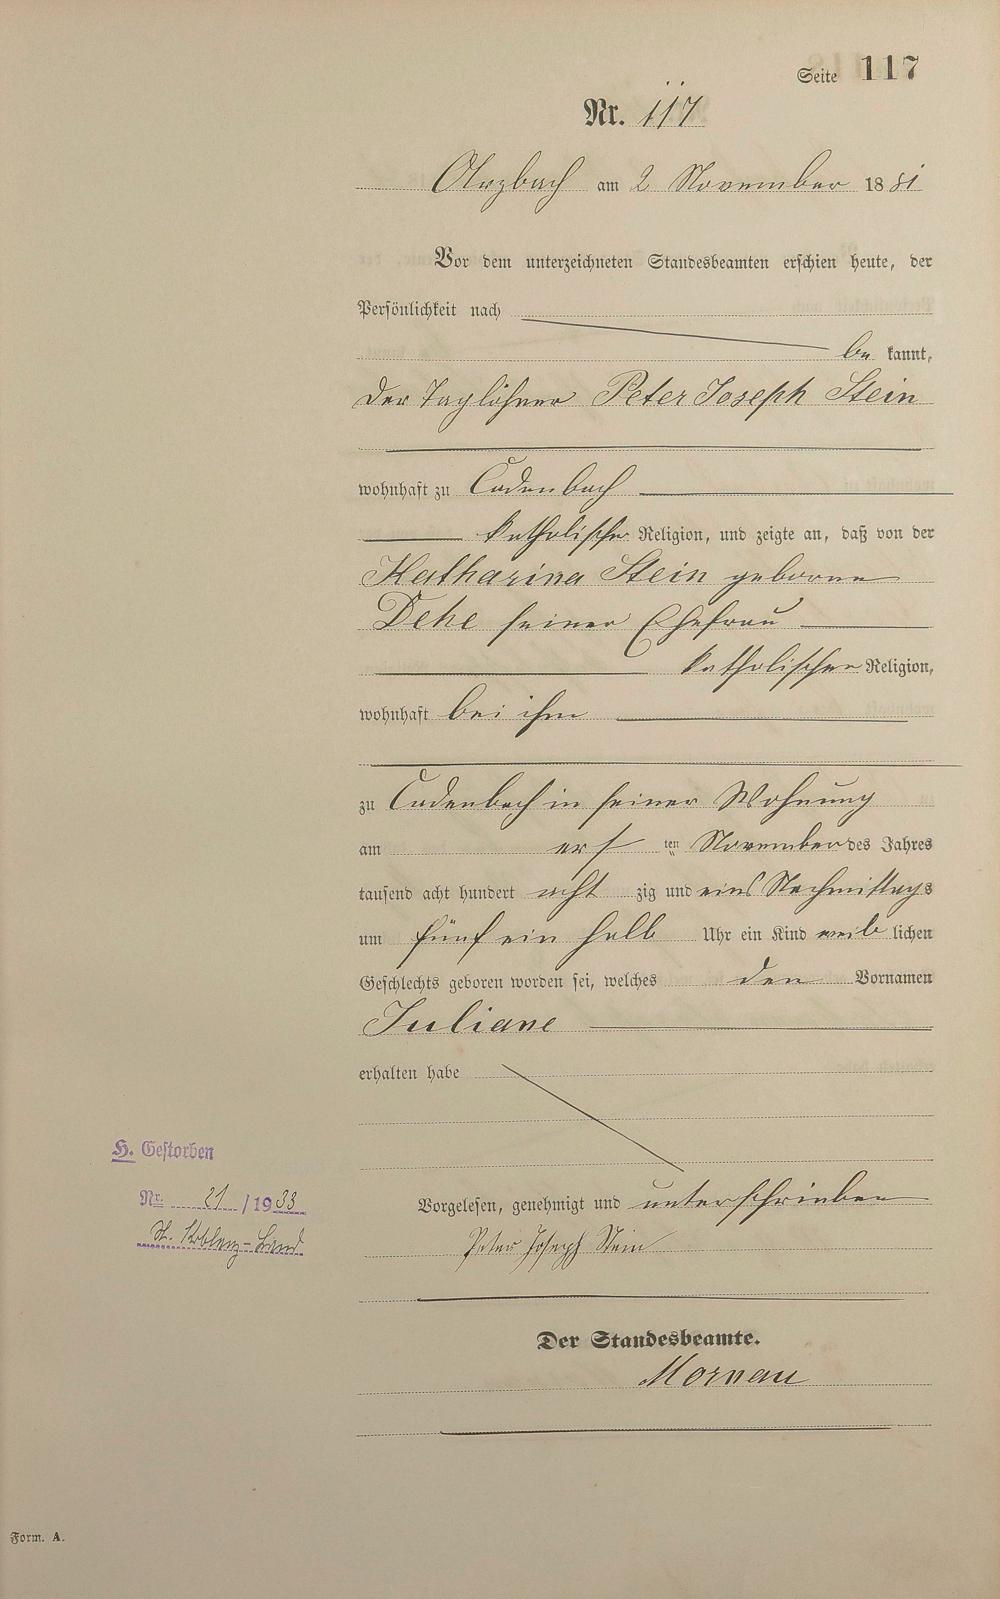 Seite 117
Nr. 117
Arzbach am 2 November 1881
Vor dem unterzeichneten Standesbeamten erschien heute, der
Persönlichkeit nach
be kannt,
der Taglöhner Peter Joseph Stein
wohnhaft zu Cadenbach
katholischer Religion, und zeigte an, daß von der
Katharina Stein geborene
Dehe seiner Ehefrau
katholischer Religion,
wohnhaft bei ihm
zu Cadenbach in seiner Wohnung
am ers ten November des Jahres
tausend acht hundert acht zig und eins Nachmittags
um fünf ein halb Uhr ein Kind weib lichen
Geschlechts geboren worden sei, welches den Vornamen
Juliane
erhalten habe
H. Gestorben
Nr. 21 / 1933
St. Koblenz-Land
Vorgelesen, genehmigt und unterschrieben
Peter Joseph Stein
Der Standesbeamte.
Mornau
Form. A.